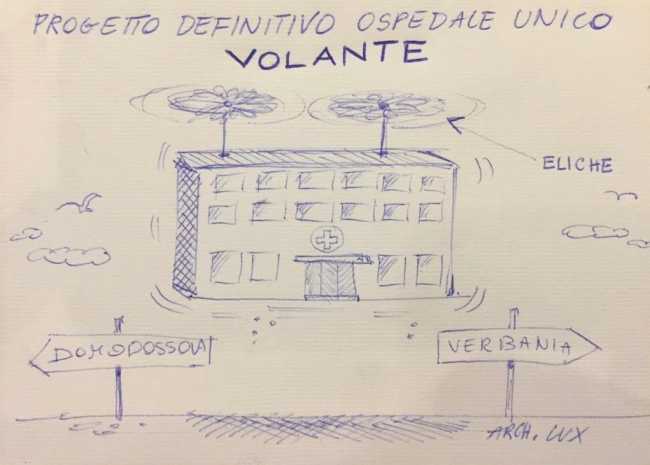 PROGETTO DEFINITIVO OSPEDALE UNICO
VOLANTE
ELICHE
DOMODOSSOLA
VERBANIA
ARCH. LUX